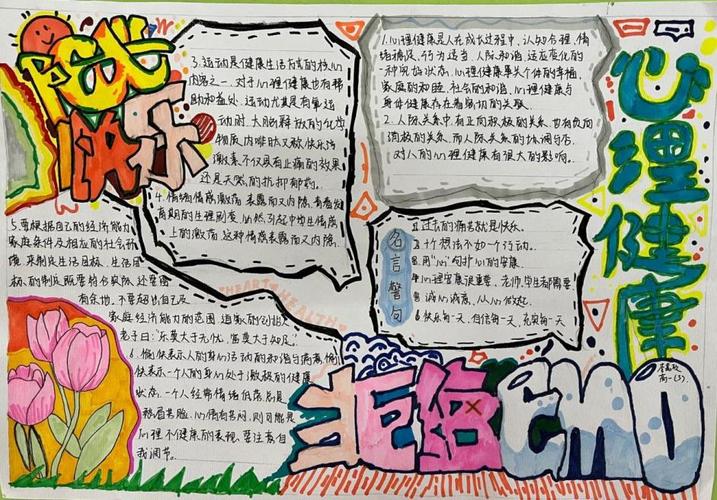 阳光
快乐
3.运动是健康生活方式的核心
内容之一,对于心理健康也有帮
助和益处,运动尤其是有氧运
动时,大脑释放的化学
物质内啡肽又称快乐
激素不仅具有止痛的效果
还是天然的抗抑郁药。
4.情绪情感激荡表露而又内隐,青春发
育期的生理剧变,必然引起中学生情感
上的激荡,这种情感表露而又内隐。
5.要根据自己的经济能力
家庭条件及相应的社会环
境,来制定生活目标,生活目
标的制定既要符合实际,还要留
有余地,不要超出自己及
家庭经济能力的范围,道家的创始人
老子曰:“乐莫大于无忧,富莫大于知足。”
6.愉快表示人的身心活动的和谐与满意,愉
快表示一个人的身心处于激极的健康
状态,一个人经常情绪低落,总是
愁眉苦脸,心情苦闷,则可能是
心理不健康的表现,要注意自
我调节。
1.心理健康是人在成长过程中,认知合理,情
绪稳定,行为适当,人际和谐,适应变化的
一种完好状态,心理健康事关个体的幸福,
家庭的和睦,社会的和谐,心理健康与
身体健康存在着密切的关联。
2.人际关系中,有正向积极的关系,也有负向
消极的关系,而人际关系的协调与否,
对人的心理健康有很大的影响。
名言警句
1.过去的痛苦就是快乐。
2.十个想法不如一个行动。
3.用“心”句排心的空康。
4.心理健康很重要,老师,学生都需要
5.诚心诚意,从心做起。
6.快乐每一天,自信每一天,充实每一天
HEART HEALTH
心理健康
拒绝EMO
高一(3)